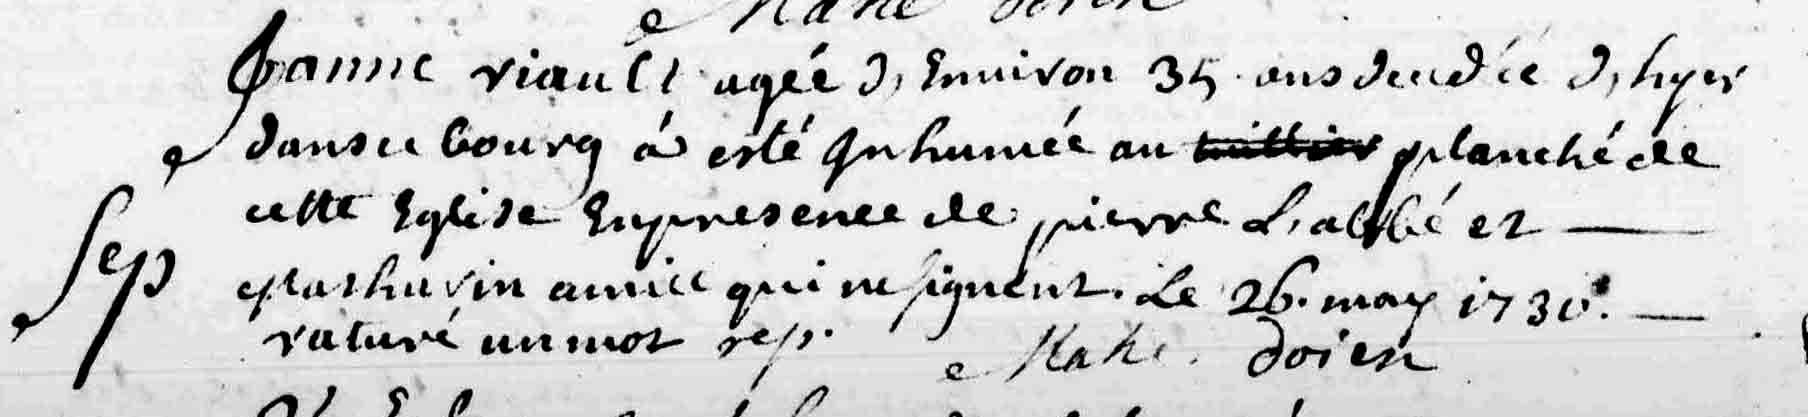 Mahé doien
Jeanne riault agée d'Environ 35 ans decedée d'hyer
dans ce bourg a esté Inhumée au planché de
cette Eglise En presence de pierre L'abbé et
Sep
mathurin amice qui ne signent. Le 26. may 1730.
raturé un mot rep. Mahé. doien